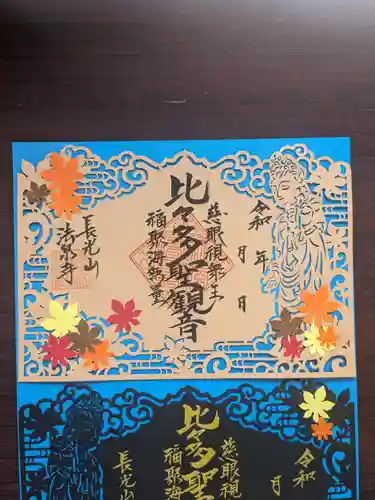 令和　年
月　日
慈眼視衆生
比々多聖観音
福聚海無量
長光山
法泉寺
令和
月
慈眼視
比々多聖
福聚海
長光山